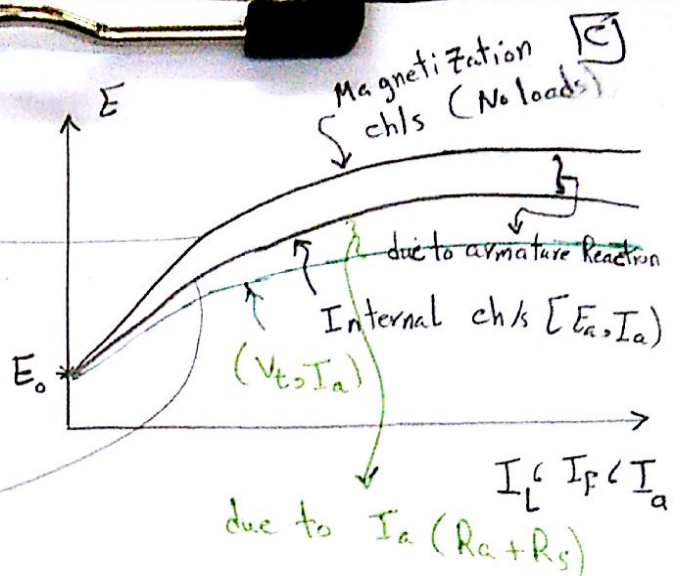 E
C
Magnetization
ch/s (No loads)
due to armature Reaction
Internal ch/s [Ea, Ia)
(Vt, Ia)
E₀
I_L, I_F, I_a
due to Ia (Ra + Rs)